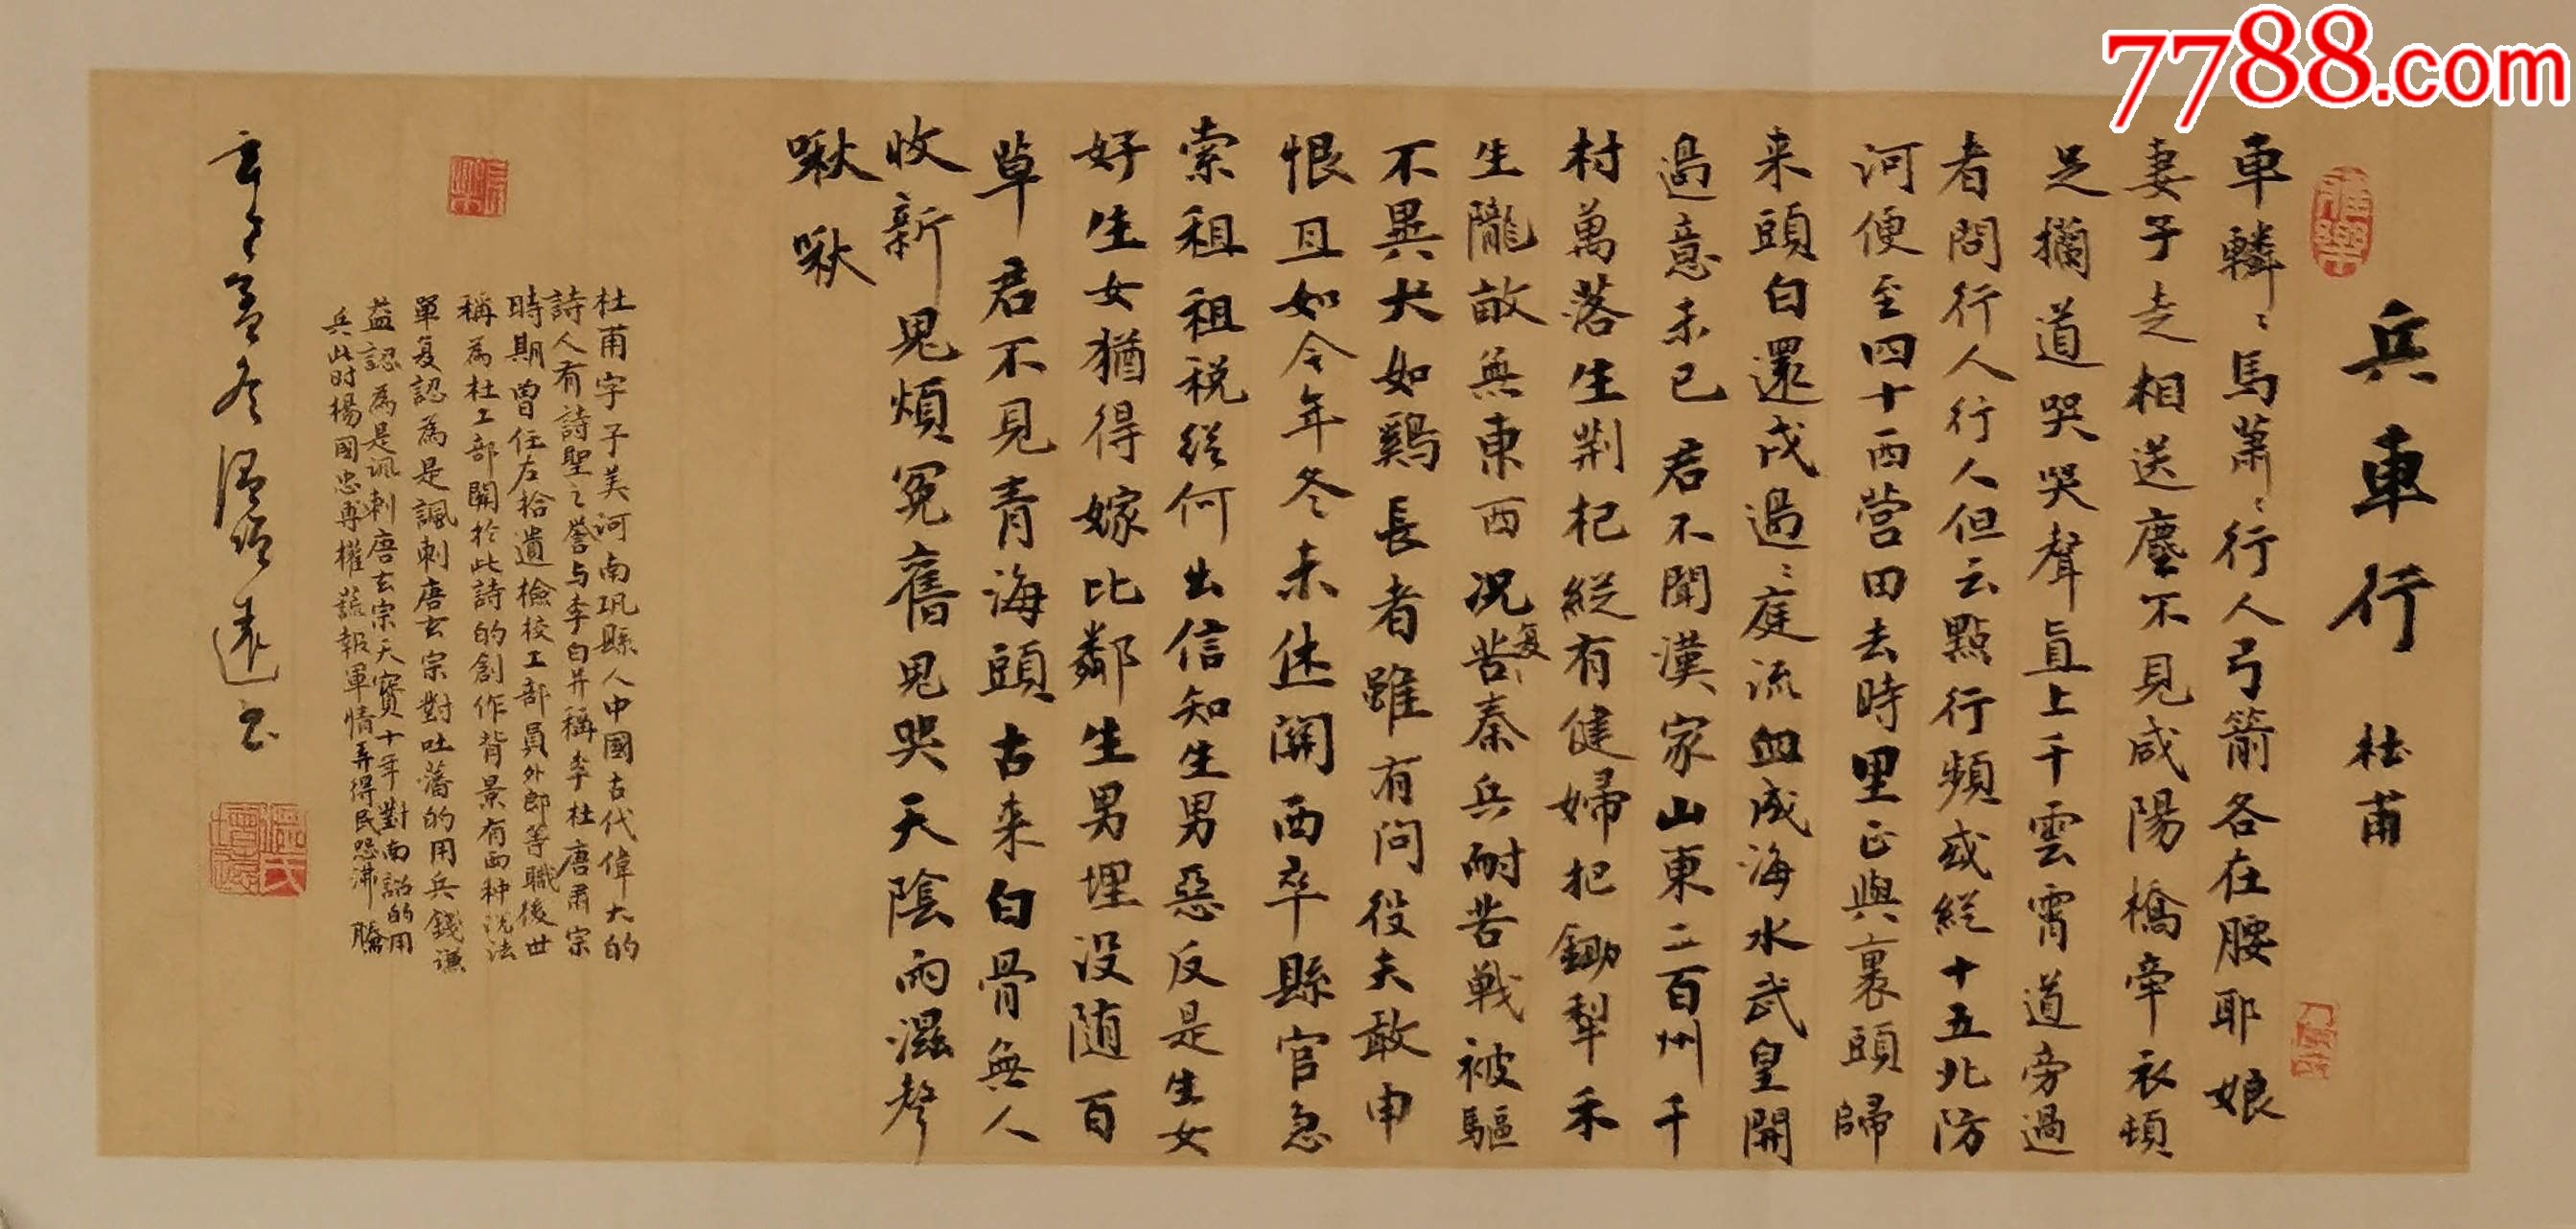 7788.com
兵車行 杜甫
車轔〻馬蕭〻行人弓箭各在腰耶娘
妻子走相送塵不見咸陽橋牽衣頓
足攔道哭哭聲直上千雲霄道旁過
者問行人行人但云點行頻或縱十五北防
河便至四十西营田去時里正與裹頭歸
来頭白還戍過〻庭流血成海水武皇開
過意未已君不聞漢家山東二百州千
村萬落生荆杞縱有健婦把鋤犁禾
生隴畝無東西况复苦秦兵耐苦戦被驅
不異犬如鷄長者雖有問役夫敢申
恨且如今年冬未休關西卒縣官急
索租租税從何出信知生男惡反是生女
好生女猶得嫁比鄰生男埋没随百
草君不見青海頭古来白骨無人
收新鬼煩冤舊鬼哭天陰雨濕聲
啾啾
杜甫字子美河南巩縣人中國古代偉大的
詩人有詩聖之誉与李白并稱李杜唐肅宗
時期曾任左拾遺檢校工部員外郎等職後世
稱為杜工部關於此詩的創作背景有两种说法
單复認為是諷刺唐玄宗對吐蕃的用兵錢谦
益認為是讽刺唐玄宗天寶十年對南詔的用
兵此时楊國忠専權謊報軍情弄得民怨沸騰
辛丑孟冬温增遠书